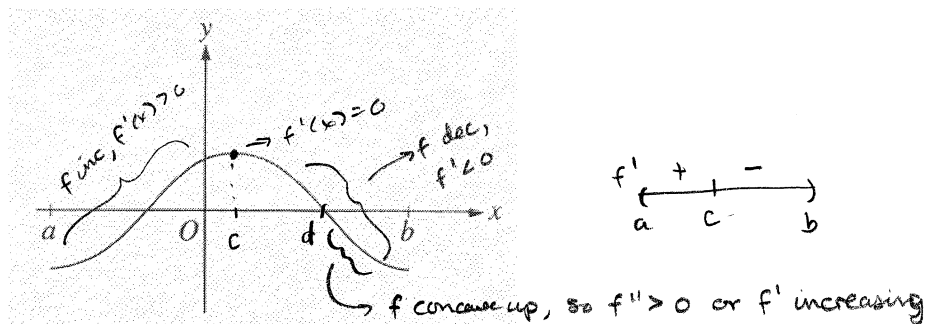 y
f inc, f'(x) > 0
⇒ f'(x) = 0
→ f dec,
f' < 0
a
O
c
d
b
x
f' + −
a c b
→ f concave up, so f'' > 0 or f' increasing